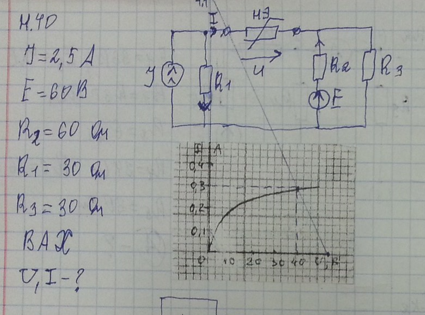 4.40
J = 2,5 A
E = 60 В
R2 = 60 Ом
R1 = 30 Ом
R3 = 30 Ом
ВАХ
U, I - ?
I
НЭ
J
R1
U
R2
E
R3
A
0,4
0,3
0,2
0,1
0 10 20 30 40 U, В